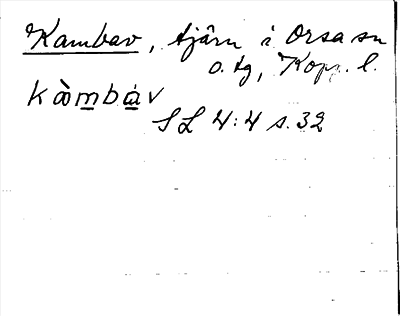 Kambav, tjärn i Orsa sn
o. tg, Kopp. l.
kàmbàv
SL 4:4 s. 32